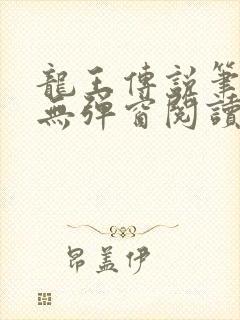 龍王傳說筆
無彈窗閱讀
昂蓋伊